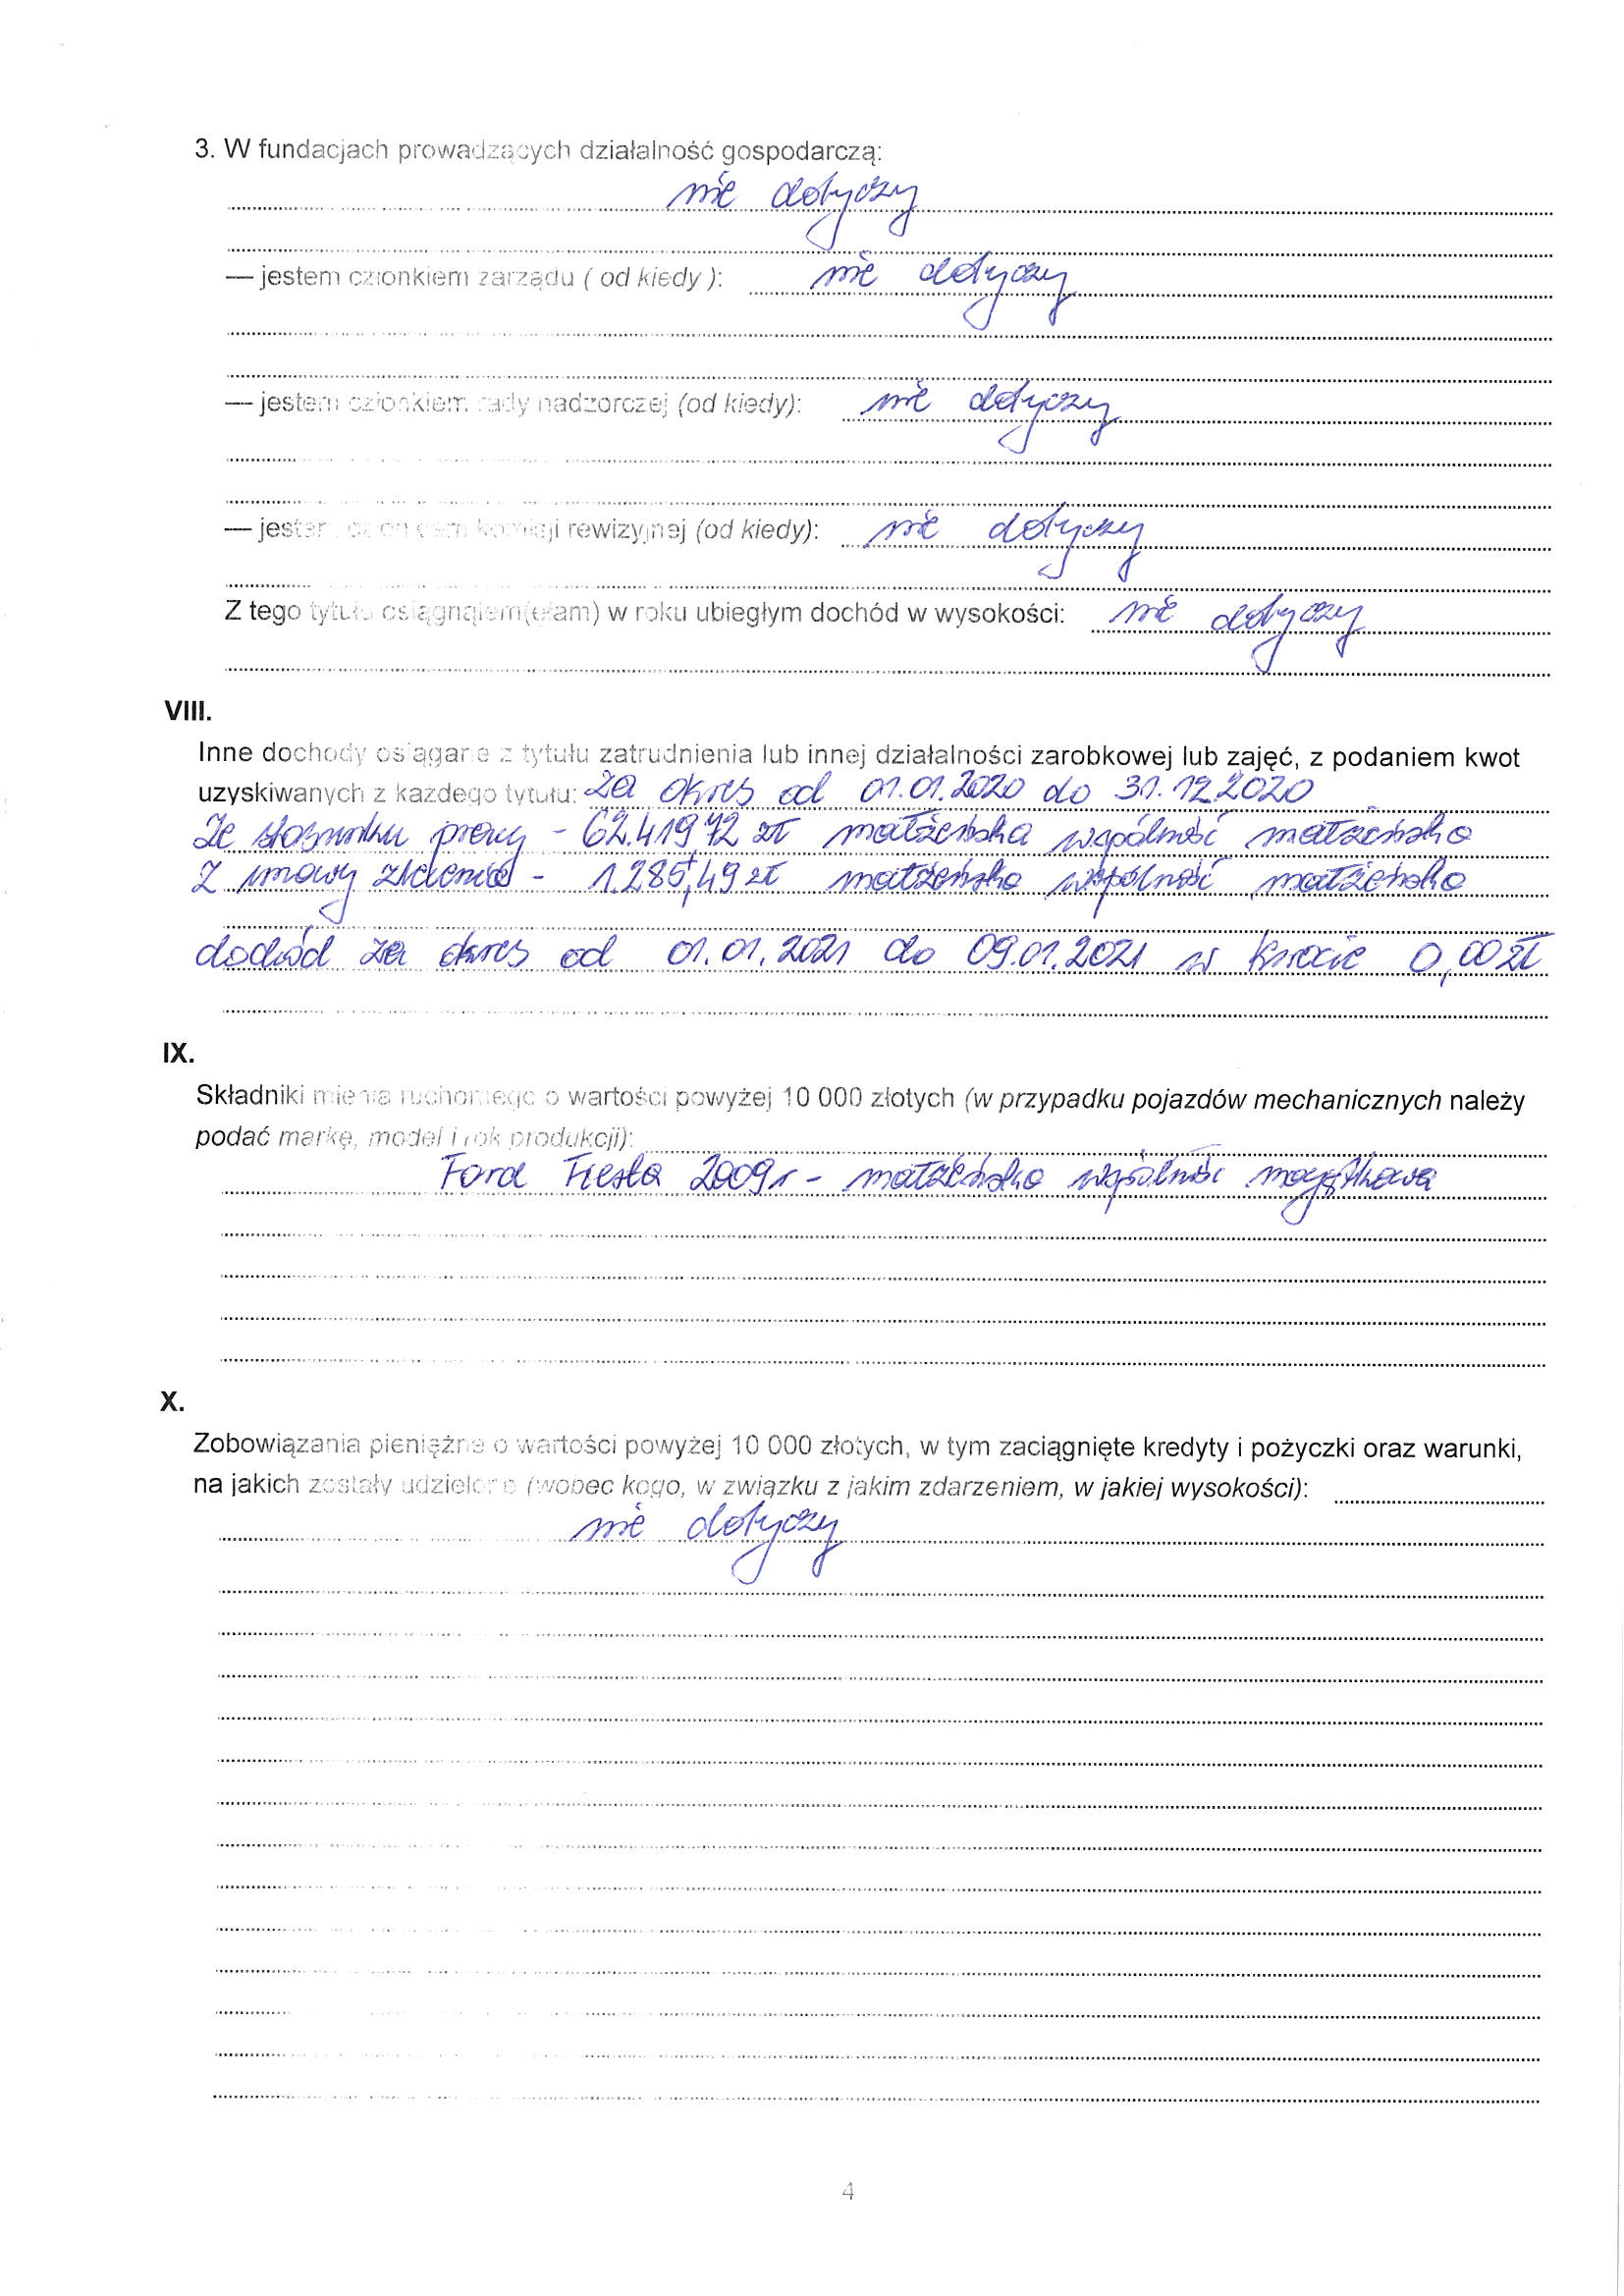 3. W fundacjach prowadzących działalność gospodarczą:
nie dotyczy
— jestem członkiem zarządu ( od kiedy ): nie dotyczy
— jestem członkiem rady nadzorczej (od kiedy): nie dotyczy
— jestem członkiem komisji rewizyjnej (od kiedy): nie dotyczy
Z tego tytułu osiągnąłem(ęłam) w roku ubiegłym dochód w wysokości: nie dotyczy
VIII.
Inne dochody osiągane z tytułu zatrudnienia lub innej działalności zarobkowej lub zajęć, z podaniem kwot
uzyskiwanych z każdego tytułu: za okres od 01.01.2020 do 31.12.2020
Ze stosunku pracy - 62.419,72 zł małżeńska wspólność małżeńska
Z umowy zlecenia - 1.285,49 zł małżeńska wspólność małżeńska
dochód za okres od 01.01.2021 do 09.01.2021 w kwocie 0,00 zł
IX.
Składniki mienia ruchomego o wartości powyżej 10 000 złotych (w przypadku pojazdów mechanicznych należy
podać markę, model i rok produkcji):
Ford Fiesta 2009r - małżeńska wspólność majątkowa
X.
Zobowiązania pieniężne o wartości powyżej 10 000 złotych, w tym zaciągnięte kredyty i pożyczki oraz warunki,
na jakich zostały udzielone (wobec kogo, w związku z jakim zdarzeniem, w jakiej wysokości):
nie dotyczy
4